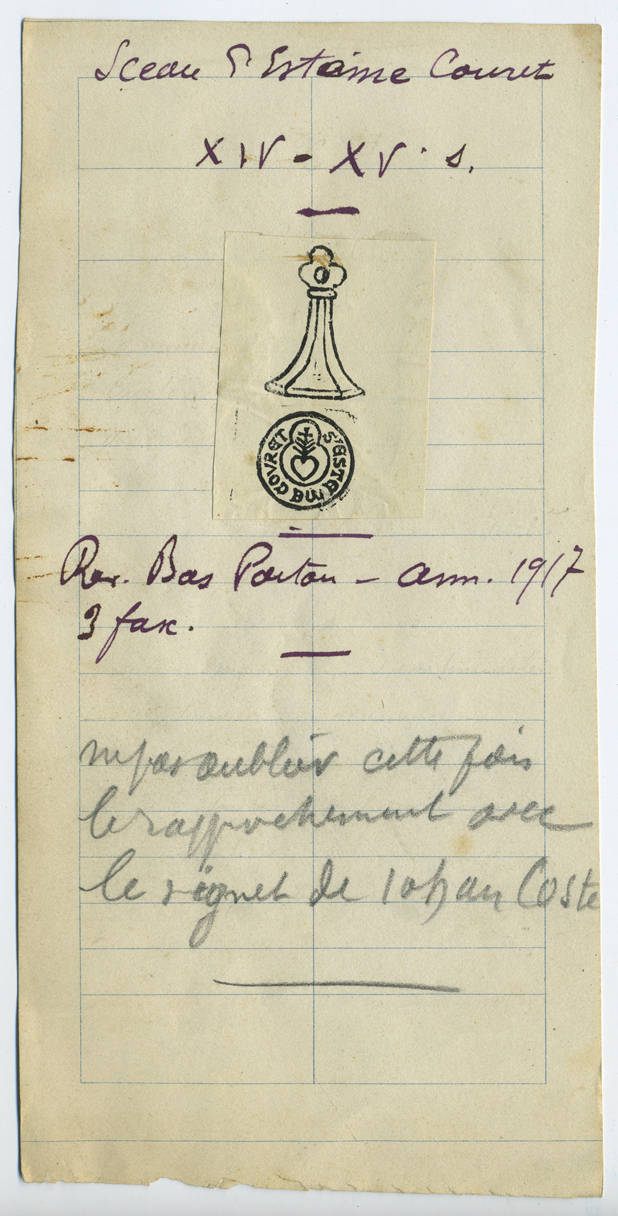 Sceau d'Esteime Couret
XIV - XV. s.
S'ESTEBEM COURET
Rev. Bas Poitou - ann. 1917
3 fax.
n pas oublier cette fois
le rapprochement avec
le signet de Iohan Coste